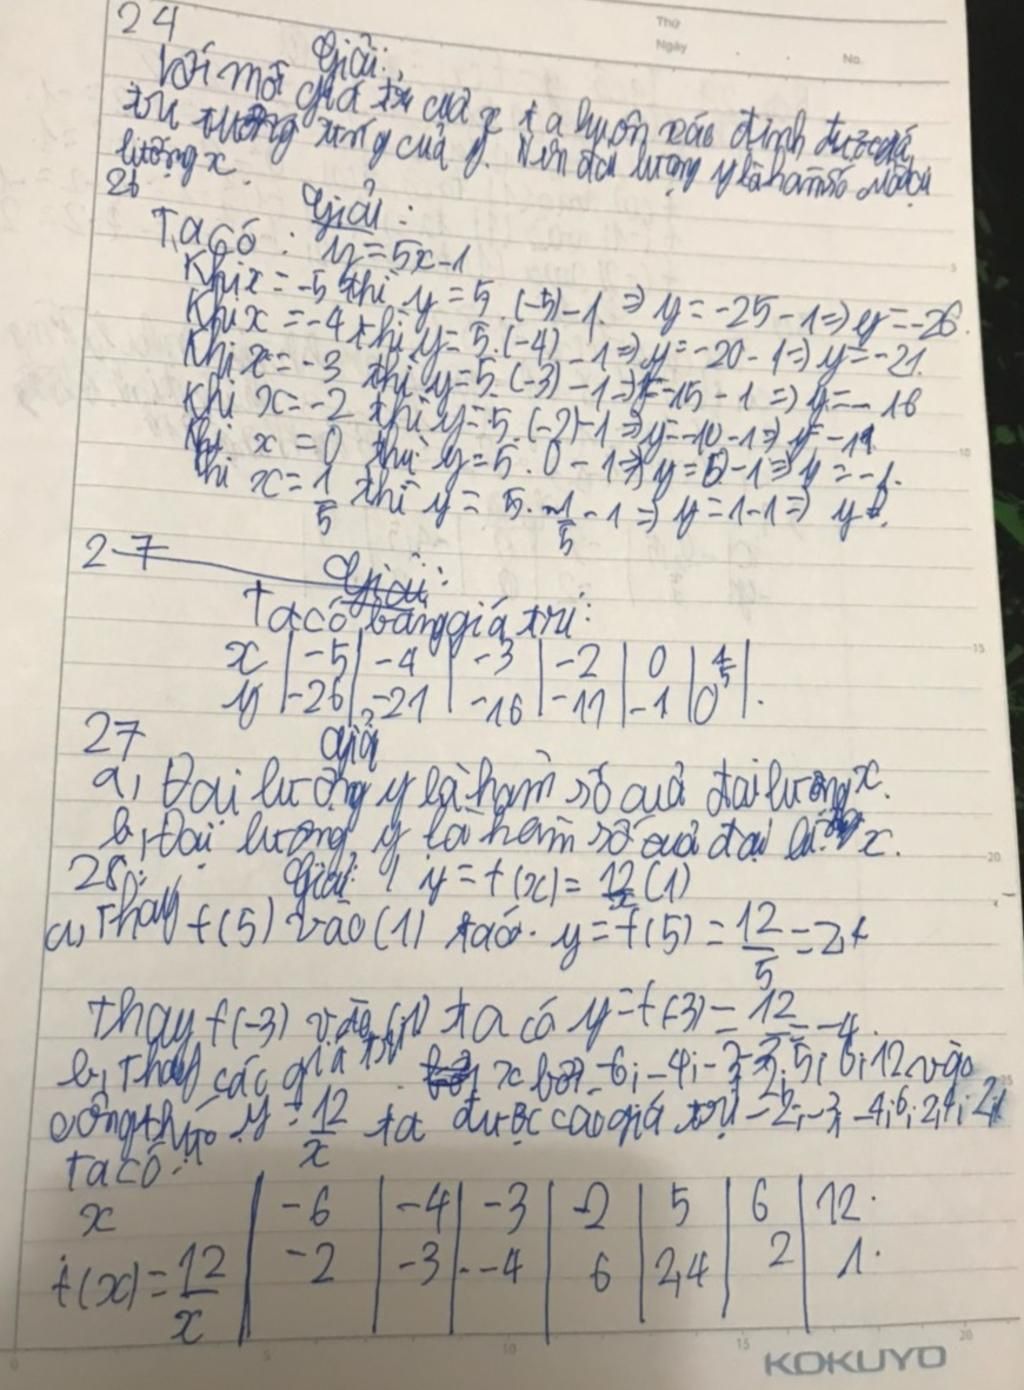 Thứ
Ngày
No.
24
Giải:
Với mỗi giá trị của x ta luôn xác định được giá
trị tương ứng của y. Nên đại lượng y là hàm số
lượng x.
26
Giải:
Ta có: y=5x-1
Khi x=-5 thì y=5.(-5)-1. => y=-25-1=> y=-26.
Khi x=-4 thì y=5.(-4)-1=> y=-20-1=> y=-21.
Khi x=-3 thì y=5.(-3)-1=> -15-1 => y=-16
Khi x=-2 thì y=5.(-2)-1=> y=-10-1=> y=-11.
x=0 thì y=5.0-1=> y=0-1=> y=-1.
x=1/5 thì y=5.1/5-1=> y=1-1=> y
27
Giải:
Ta có bảng giá trị:
x | -5 | -4 | -3 | -2 | 0 | 1/5 |
y | -26 | -21 | -16 | -11 | -1 | 0 | .
27
Giải
a, Đại lượng y là hàm số của đại lượng x.
b, Đại lượng y là hàm số của đại x.
28: Giải: y=f(x)=12/x (1)
a, Thay f(5) vào (1) ta có. y=f(5)=12/5=2,4
Thay f(-3) vào (1) ta có y=f(-3)=12 =-4.
b, Thay các giá trị x bởi -6; -4; -3 5; 6; 12 vào
công thức y=12/x ta được các giá trị -2; -3; -4; 6; 2,4; 2;
Ta có:
x | -6 | -4 | -3 | -2 | 5 | 6 | 12.
f(x)=12/x | -2 | -3 | -4 | 6 | 2,4 | 2 | 1.
5 10 15 20
KOKUYO